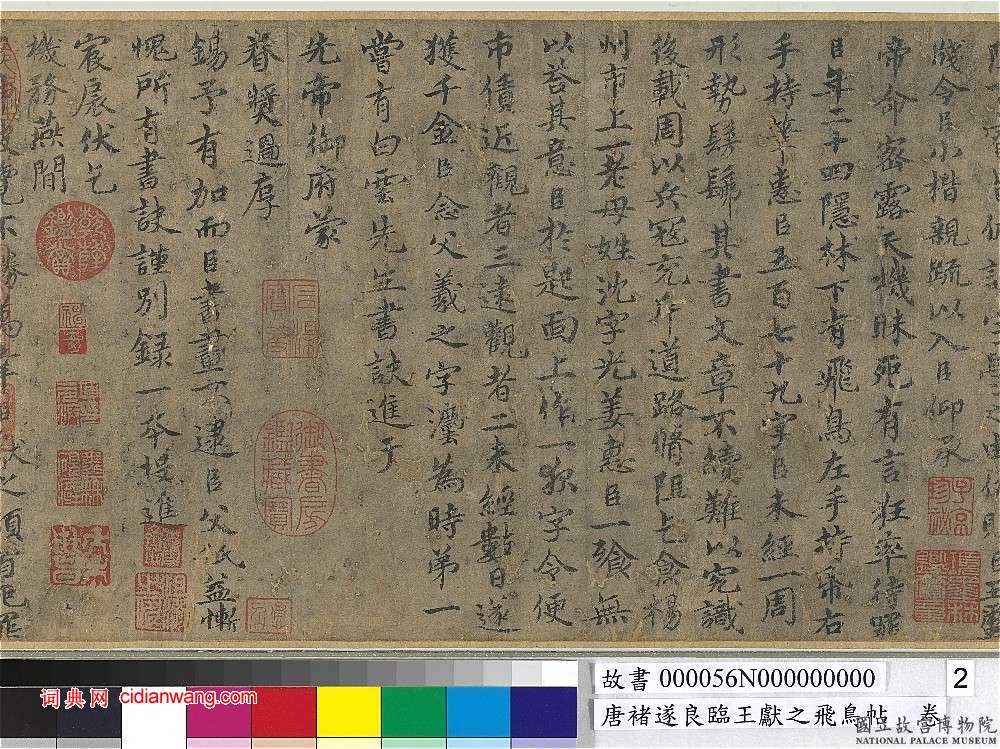 牋今臣小楷親疏以入臣仰承
帝命密露天機昧死有言狂率待罪
臣年二十四隱林下有飛鳥左手持帋右
手持筆惠臣五百七十九字臣未經一周
形勢髣髴其書文章不續難以究識
後載周以兵寇充斥道路脩阻乞食揚
州市上一老母姓沈字光姜惠臣一飡無
以荅其意臣於匙面上作一夜字令便
市債近觀者三遠觀者二未經數日遂
獲千金臣念父羲之字灋為時第一
嘗有白雲先生書訣進于
先帝御府蒙
眷獎過厚
錫予有加而臣書畫不逮臣父祗益慚
愧所有書訣謹別録一本投進
宸扆伏乞
機務燕間
御書房鑑藏寶
故書 000056N000000000
2
唐褚遂良臨王獻之飛鳥帖 卷
词典网 cidianwang.com
國立故宮博物院
NATIONAL PALACE MUSEUM